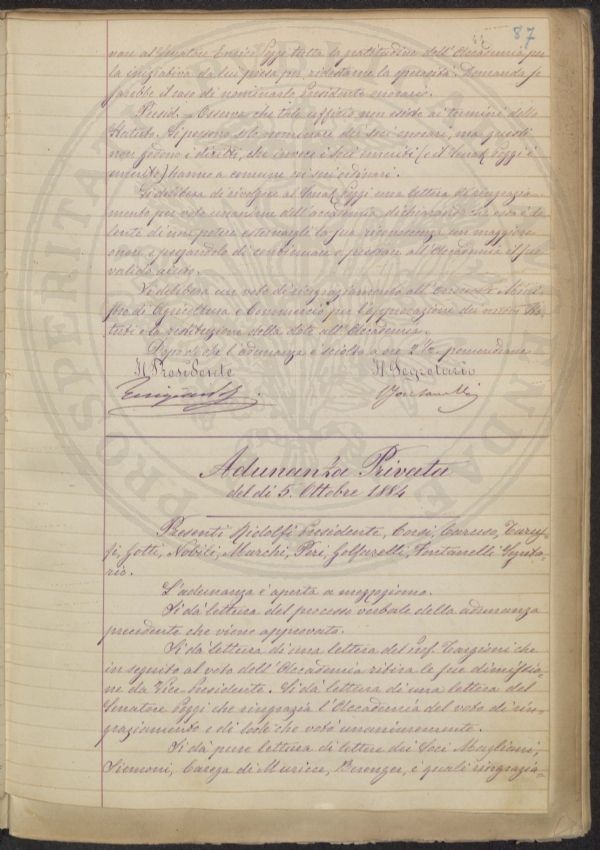 87
nare al Senatore Enrico Poggi tutta la gratitudine dell'Accademia per
la iniziativa da lui presa per ridestarne la operosità. Domanda se
sarebbe il caso di nominarlo Presidente onorario.
Presid. - Osserva che tale ufficio non esiste ai termini dello
Statuto. Si possono solo nominare dei soci onorari, ma questi
non godono i diritti, che invece i Soci emeriti (e il Senat. Poggi è
emerito) hanno a comune coi soci ordinari.
Si delibera di rivolgere al Senat. Poggi una lettera di ringrazia-
mento per voto unanime dell'accademia dichiarando che essa è do-
lente di non potere esternargli la sua riconoscenza con maggiore
onore e pregandolo di continuare a prestare all'Accademia il suo
valido aiuto.
Si delibera un voto di ringraziamento all' Mini-
stro di Agricoltura e Commercio per l'approvazione dei nostri Sta-
tuti e la restituzione della dote all'Accademia.
Dopo di che l'adunanza è sciolta a ore 2 1/2 pomeridiane
Il Presidente
Il Segretario
Fontanelli
Adunanza Privata
del dì 5. Ottobre 1884
Presenti Ridolfi Presidente, Corsi, Caruso, Taruf-
fi, Gotti, Nobili, Marchi, Peri, Golfarelli, Fontanelli Segreta-
rio.
L'adunanza è aperta a mezzogiorno.
Si dà lettura del processo verbale della adunanza
precedente che viene approvato.
Si dà lettura di una lettera del prof. Targioni che
in seguito al voto dell'Accademia ritira le sue dimissio-
ne da Vice Presidente. Si dà lettura di una lettera del
Senatore Poggi che ringrazia l'Accademia del voto di rin-
graziamento e di lode che votò unanimemente.
Si dà pure lettura di lettere dei Soci Magliani,
Siemoni, Carega di Muricce, Berenger, i quali ringrazia-
PROSPERITATI AUGENDAE